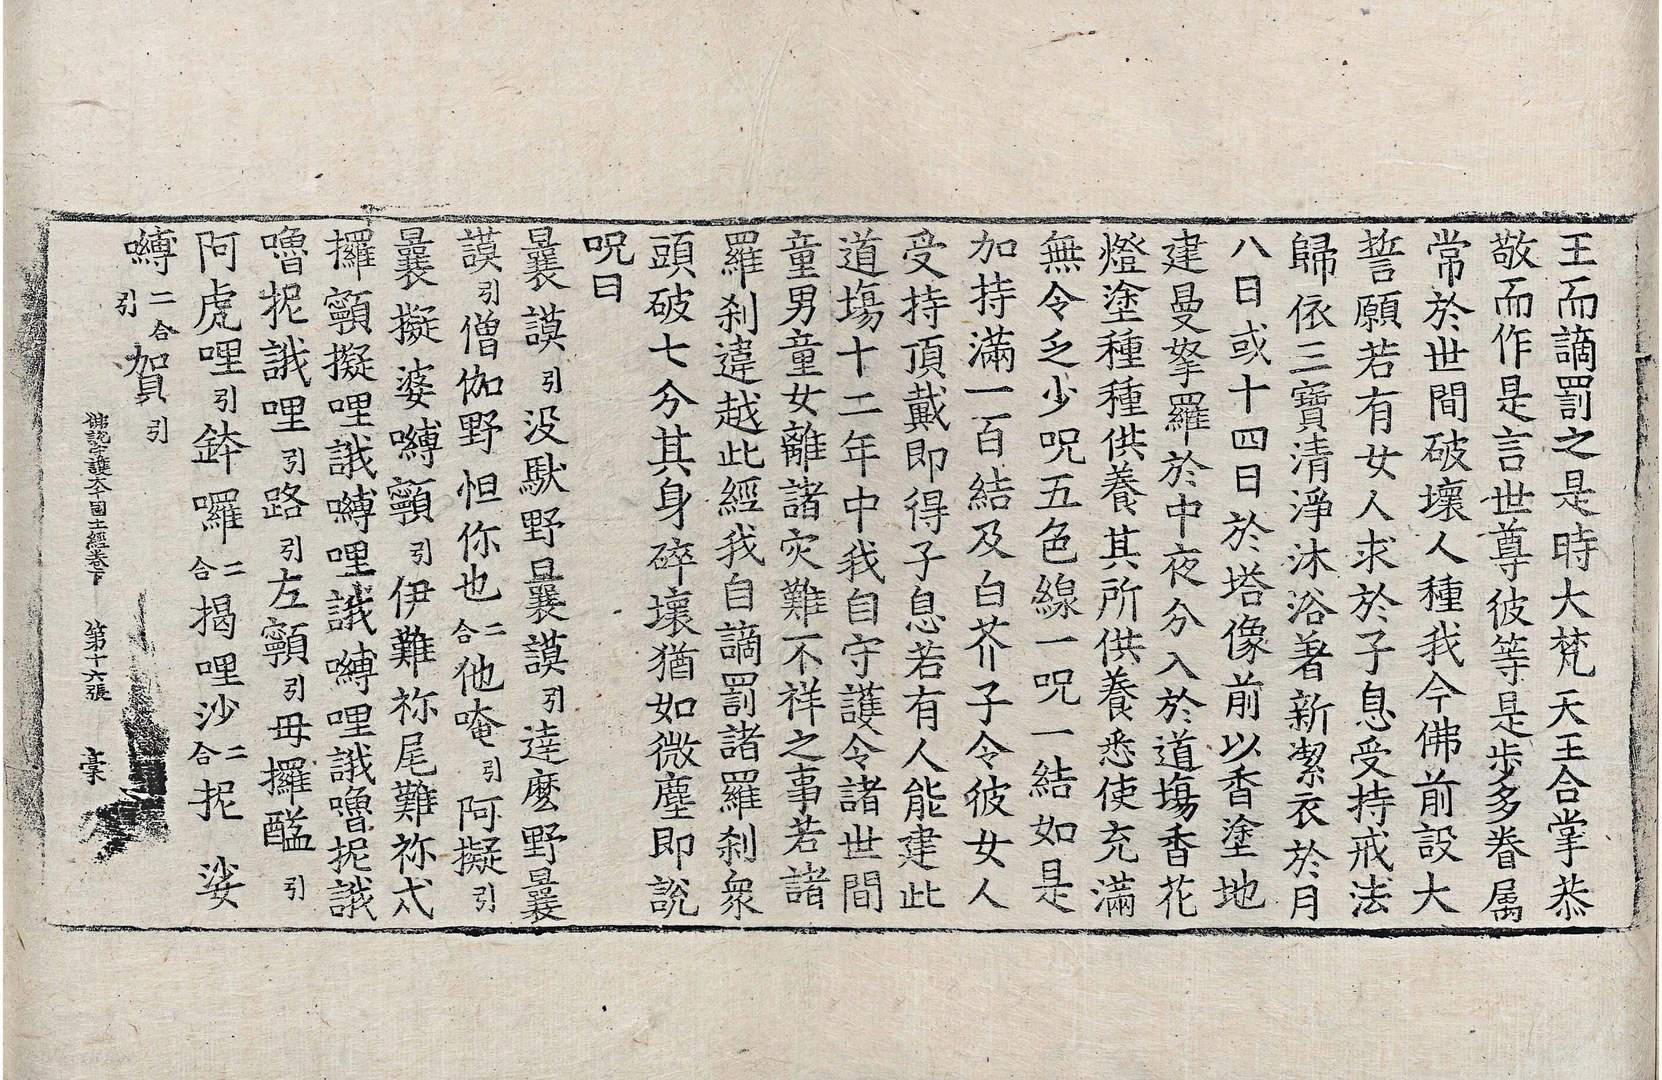 王而謫罰之是時大梵天王合掌恭
敬而作是言世尊彼等是步多眷属
常於世間破壞人種我今佛前設大
誓願若有女人求於子息受持戒法
歸依三寶清淨沐浴著新潔衣於月
八日或十四日於塔像前以香塗地
建曼拏羅於中夜分入於道場香花
燈塗種種供養其所供養悉使充滿
無令乏少呪五色線一呪一結如是
加持滿一百結及白芥子令彼女人
受持頂戴即得子息若有人能建此
道場十二年中我自守護令諸世間
童男童女離諸灾難不祥之事若諸
羅刹違越此經我自謫罰諸羅刹衆
頭破七分其身碎壞猶如微塵即說
呪曰
曩謨引没馱野曩謨引達麽野曩
謨引僧伽野怛你也二合他唵引阿擬引
曩擬婆嚩顙引伊難祢尾難祢忒
攞顙擬哩誐嚩哩誐嚩哩誐嚕抳誐
嚕抳誐哩引路引左顙引毋攞醯引
阿虎哩引鉢囉二合揭哩沙二合抳娑
嚩二合引賀引
佛說守護大千國土經卷下 第十六張 豪